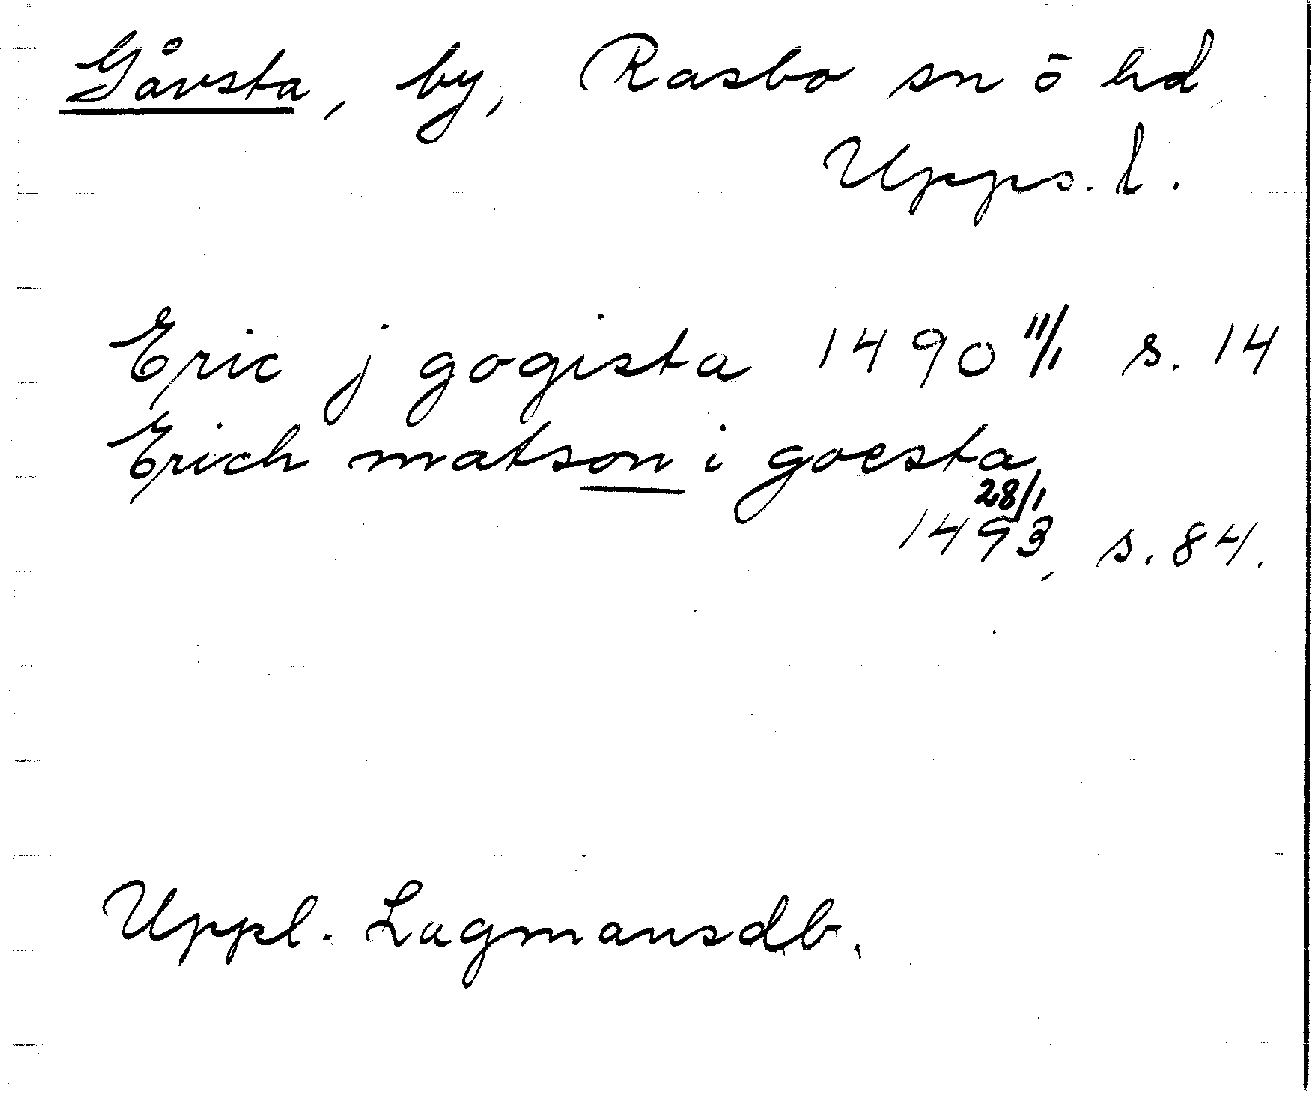 Gåvsta, by, Rasbo sn o hd
Upps. l.
Eric j gogista 1490 11/1 s. 14
Erich matson i goesta
28/1
1493, s. 84.
Uppl. Lagmansdb.